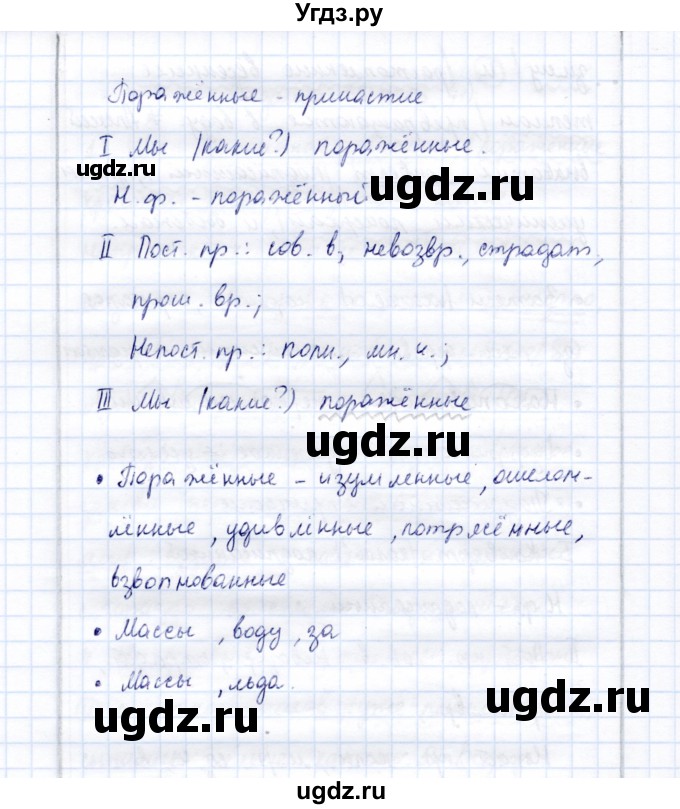 Угдз.ру
Поражённые - причастие
I Мы (какие?) поражённые.
ugdz.ru
Н.ф. - поражённый ugdz.ru
II Пост. пр.: сов. в, невозвр., страдат,
прош. вр.;
Непост. пр.: полн., мн. ч.;
III Мы (какие?) поражённые
ugdz.ru
• Поражённые - изумленные, ошелом-
лённые, удивлённые, потрясённые,
взволнованные
• Массы, воду, за
• Массы, льда.
ugdz.ru
ugdz.ru
ugdz.ru